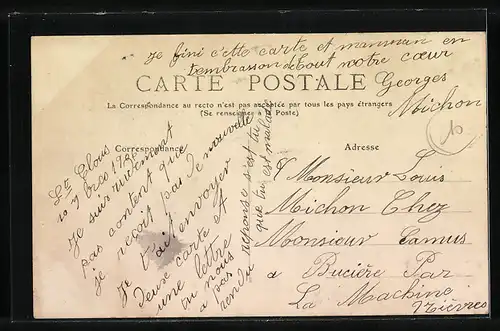 Je fini cette carte et mamman en
tembrasson de tout notre cœur
Georges
Michon
CARTE POSTALE
La Correspondance au recto n'est pas acceptée par tous les pays étrangers
(Se renseigner à la Poste)
Correspondance
Adresse
St Cloud
Je suis vraiment
pas content que
je reçoit pas de nouvelle
Je tait envoyer
Deuse carte et
une lettre
a nous
pas
rendu
réponse s'est tu
que tu est malade
Monsieur Louis
Michon Chez
Monsieur Camus
a Bucière Par
La Machine
Nièvres
10